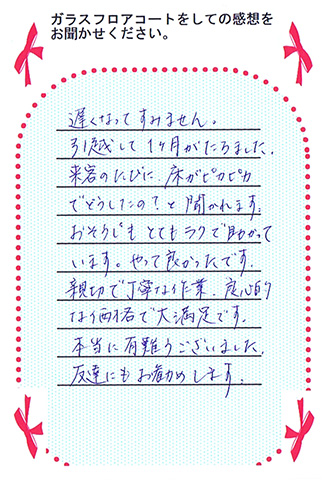 ガラスフロアコートをしての感想を
お聞かせください。
遅くなってすみません。
引越して1ヶ月がたちました。
来客のたびに、床がピカピカ
でどうしたの？と聞かれます。
おそうじもとてもラクで助かって
います。やって良かったです。
親切で丁寧な作業、良心的
な価格で大満足です。
本当に有難うございました。
友達にもお勧めします。